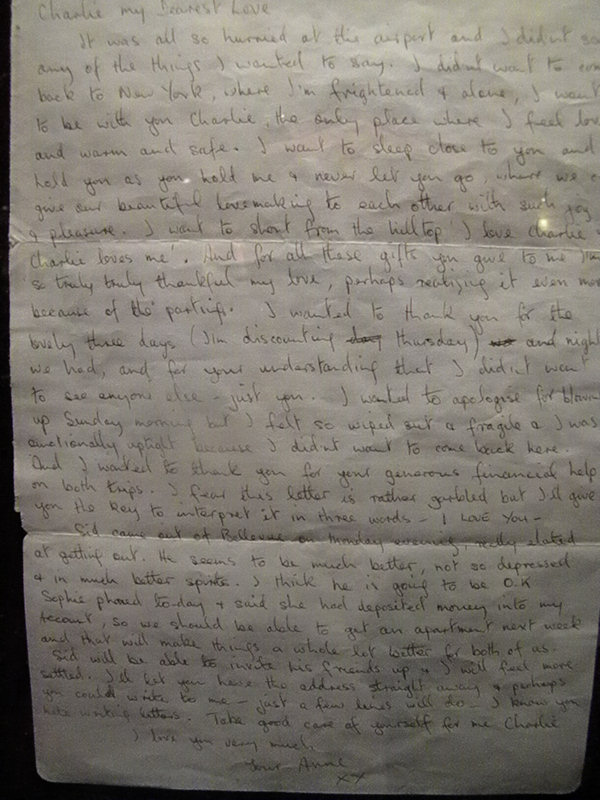 Charlie my Dearest Love
It was all so hurried at the airport and I didn't say
any of the things I wanted to say. I didn't want to come
back to New York, where I'm frightened & alone, I want
to be with you Charlie, the only place where I feel love
and warm and safe. I want to sleep close to you and
hold you as you hold me & never let you go, where we
give our beautiful lovemaking to each other with such joy
& pleasure. I want to shout from the hilltop 'I love Charlie
Charlie loves me'. And for all these gifts you give to me I'm
so truly truly thankful my love, perhaps realising it even more
because of the parting. I wanted to thank you for the
lovely three days (I'm discounting day Thursday) and night
we had, and for your understanding that I didn't want
to see anyone else - just you. I wanted to apologise for blowing
up Sunday morning but I felt so wiped out & fragile & I was
emotionally uptight because I didn't want to come back here.
And I wanted to thank you for your generous financial help
on both trips. I fear this letter is rather garbled but I'll give
you the key to interpret it in three words - I LOVE YOU -
Sid came out of Bellevue on Monday evening, really elated
at getting out. He seems to be much better, not so depressed
& in much better spirits. I think he is going to be O.K
Sophie phoned to-day & said she had deposited money into my
account, so we should be able to get an apartment next week
and that will make things a whole lot better for both of us.
Sid will be able to invite his friends up & I will feel more
settled. I'll let you have the address straight away & perhaps
you could write to me - just a few lines will do - I know you
hate writing letters. Take good care of yourself for me Charlie
I love you very much.
Your Anne
xx